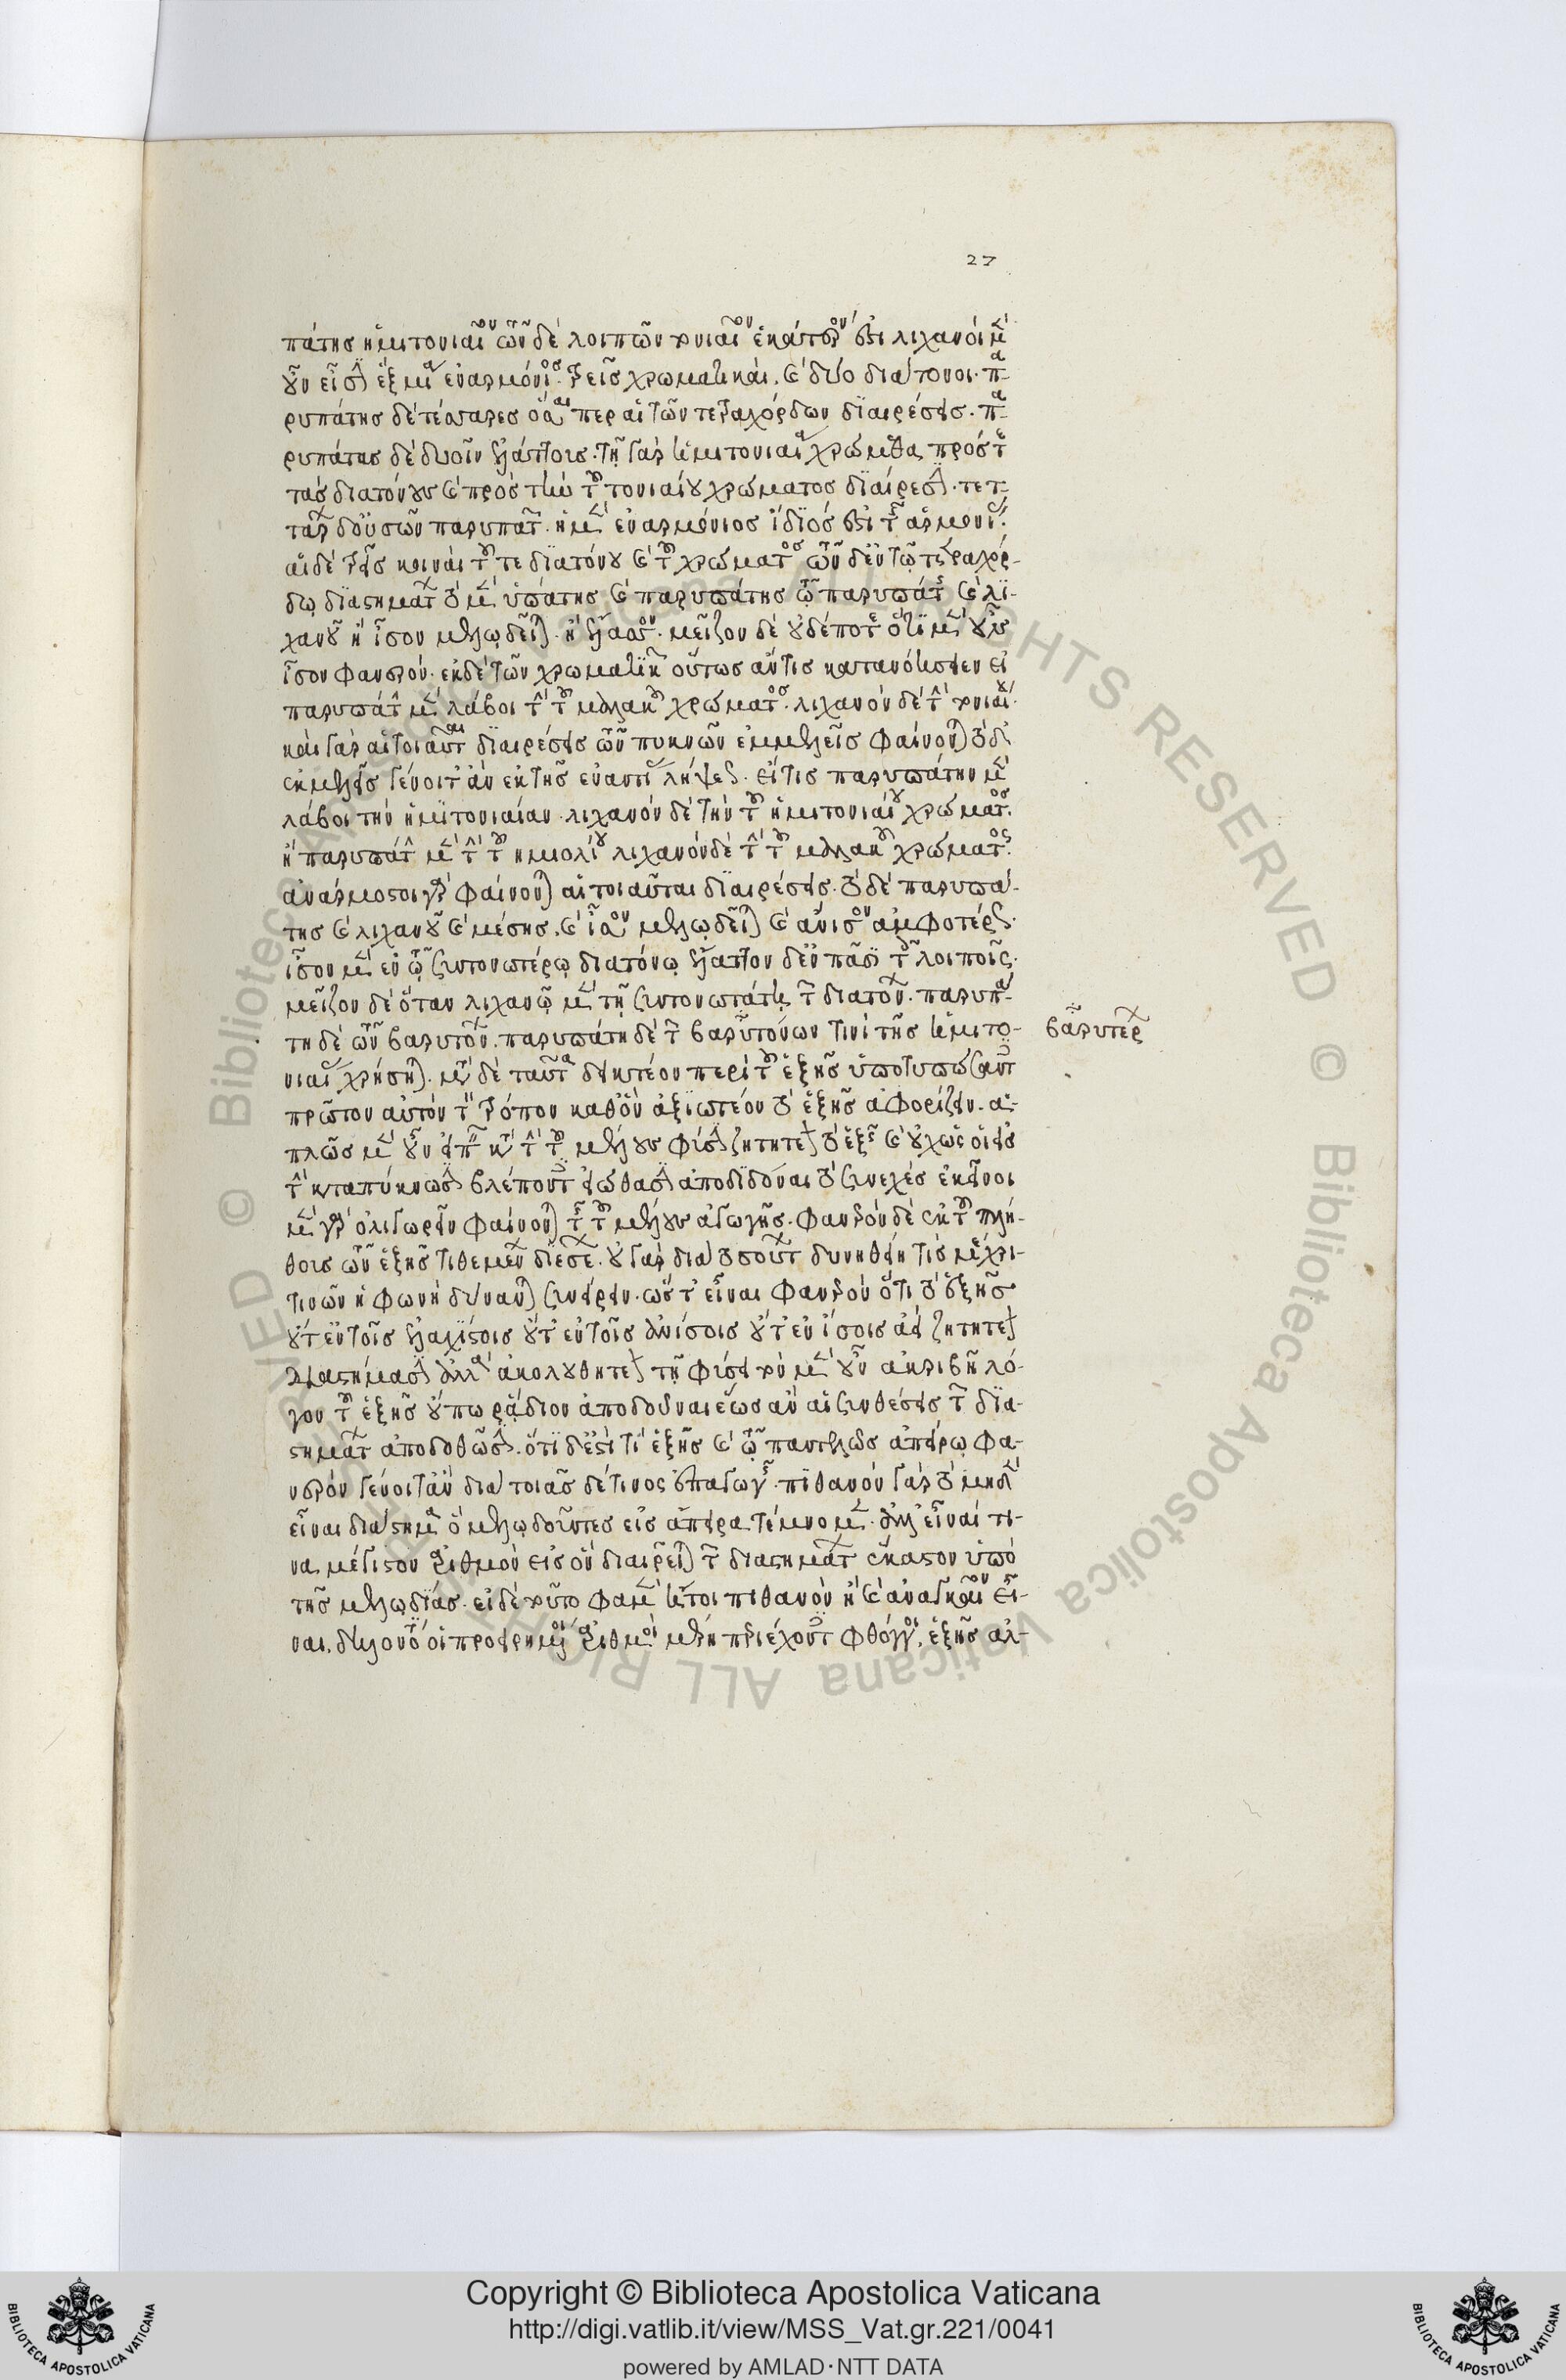 27
πάτης ἡμιτονιαῖον τῶν δὲ λοιπῶν τονιαῖον ἑκάτερον ἐστι λιχανοὶ μὲν
οὖν εἰσὶν ἓξ μία ἐναρμόνιος. τρεῖς χρωματικαὶ. καὶ δύο διάτονοι. πα-
ρυπάτης δὲ τέσσαρες ὅσαι περ αἱ τῶν τετραχόρδων διαιρέσεις. πα-
ρυπάτας δὲ δυοῖν ἐλάττοις. τῇ γὰρ ἡμιτονιαία χρώμεθα πρός τε
τὰς διατόνους καὶ πρὸς τὴν τοῦ τονιαίου χρώματος διαίρεσιν. τετ-
τάρων δ' οὐσῶν παρυπατῶν. ἡ μὲν ἐναρμόνιος ἴδιός ἐστι τῆς ἁρμονίας.
αἱ δὲ τρεῖς κοιναὶ τοῦ τε διατόνου καὶ τοῦ χρώματος τῶν δ' ἐν τῷ τετραχόρ-
δῳ διαστημάτων τὸ μὲν ὑπάτης καὶ παρυπάτης τῷ παρυπάτης καὶ λι-
χανοῦ ἢ ἴσον μελῳδεῖται. ἢ ἔλαττον. μεῖζον δὲ οὐδέποτε ὅτι μὲν οὖν
ἴσον φανερόν. ἐκ δὲ τῶν χρωματικῶν οὕτως ἄν τις κατανοήσειεν εἰ
παρυπάτην μὲν λάβοι τὴν τοῦ μαλακοῦ χρώματος. λιχανὸν δὲ τὴν τονιαίου.
καὶ γὰρ αἱ τοιαῦται διαιρέσεις τῶν πυκνῶν ἐμμελεῖς φαίνονται τὸ δ'
ἐκμελὲς γένοιτ' ἂν ἐκ τῆς ἐναντίας λήψεως. εἴ τις παρυπάτην μὲν
λάβοι τὴν ἡμιτονιαίαν. λιχανὸν δὲ τὴν τοῦ ἡμιτονιαίου χρώματος.
ἢ παρυπάτην μὲν τὴν τοῦ ἡμιολίου λιχανὸν δὲ τὴν τοῦ μαλακοῦ χρώματος.
ἀνάρμοστοι γὰρ φαίνονται αἱ τοιαῦται διαιρέσεις. τὸ δὲ παρυπά-
της καὶ λιχανοῦ καὶ μέσης. καὶ ἴσον μελῳδεῖται καὶ ἄνισον ἀμφοτέρως.
ἴσον μὲν ἐν τῷ συντονωτέρῳ διατόνῳ ἔλαττον δ' ἐν πᾶσι τοῖς λοιποῖς.
μεῖζον δὲ ὅταν λιχανῷ μὲν τῇ συντονωτάτῃ τῶν διατόνων. παρυπά-
τη δὲ τῶν βαρυτόνων. παρυπάτη δὲ τῶν βαρυτόνων τινὶ τῆς ἡμιτο-
βαρυτέρων
νιαίας χρήσηται. μετὰ δὲ ταῦτα δεικτέον περὶ τοῦ ἑξῆς ὑποτυπώσαντας
πρῶτον αὐτὸν τὸν τρόπον καθ' ὃν ἀξιωτέον τὸ ἑξῆς ἀφορίζειν. ἁ-
πλῶς μὲν οὖν εἰπεῖν κατὰ τὴν τοῦ μέλους φύσιν ζητητέον τὸ ἑξῆς καὶ οὐχ ὡς οἱ εἰς
τὴν καταπύκνωσιν βλέποντες εἰώθασιν ἀποδιδόναι τὸ συνεχὲς ἐκεῖνοι
μὲν γὰρ ὀλιγωρεῖν φαίνονται τῆς τοῦ μέλους ἀγωγῆς. φανερὸν δὲ ἐκ τοῦ πλή-
θους τῶν ἑξῆς τιθεμένων διέσεων. οὐ γὰρ διὰ τοσούτων δυνηθείη τις μέχρι
τινῶν ἡ φωνὴ δύναται συνείρειν. ὥστ' εἶναι φανερὸν ὅτι τὸ ἑξῆς
οὔτ' ἐν τοῖς ἐλαχίστοις οὔτ' ἐν τοῖς ἀνίσοις οὔτ' ἐν ἴσοις ἀεὶ ζητητέον
διαστήμασιν ἀλλὰ ἀκολουθητέον τῇ φύσει τὸν μὲν οὖν ἀκριβῆ λό-
γον τοῦ ἑξῆς οὔπω ῥᾴδιον ἀποδοῦναι ἕως ἂν αἱ συνθέσεις τῶν δια-
στημάτων ἀποδοθῶσιν. ὅτι δ' ἔστι τὶ ἑξῆς καὶ τῷ παντελῶς ἀπείρῳ φα-
νερὸν γένοιτ' ἂν διὰ τοιᾶς δέ τινος ἐπαγωγῆς. πιθανὸν γὰρ τὸ μηδὲν
εἶναι διάστημα ὃ μελῳδοῦντες εἰς ἄπειρα τέμνομεν. ἀλλ' εἶναί τι-
να μέγιστον ἀριθμὸν εἰς ὃν διαιρεῖται τῶν διαστημάτων ἕκαστον ὑπὸ
τῆς μελῳδίας. εἰ δὲ τοῦτο φαμὲν ἤτοι πιθανὸν ἢ καὶ ἀναγκαῖον εἶ-
ναι. δῆλον ὅτι οἱ προειρημένοι ἀριθμοὶ μέρη περιέχοντες φθόγγοι. ἑξῆς ἀλ-
Copyright © Biblioteca Apostolica Vaticana
http://digi.vatlib.it/view/MSS_Vat.gr.221/0041
powered by AMLAD·NTT DATA